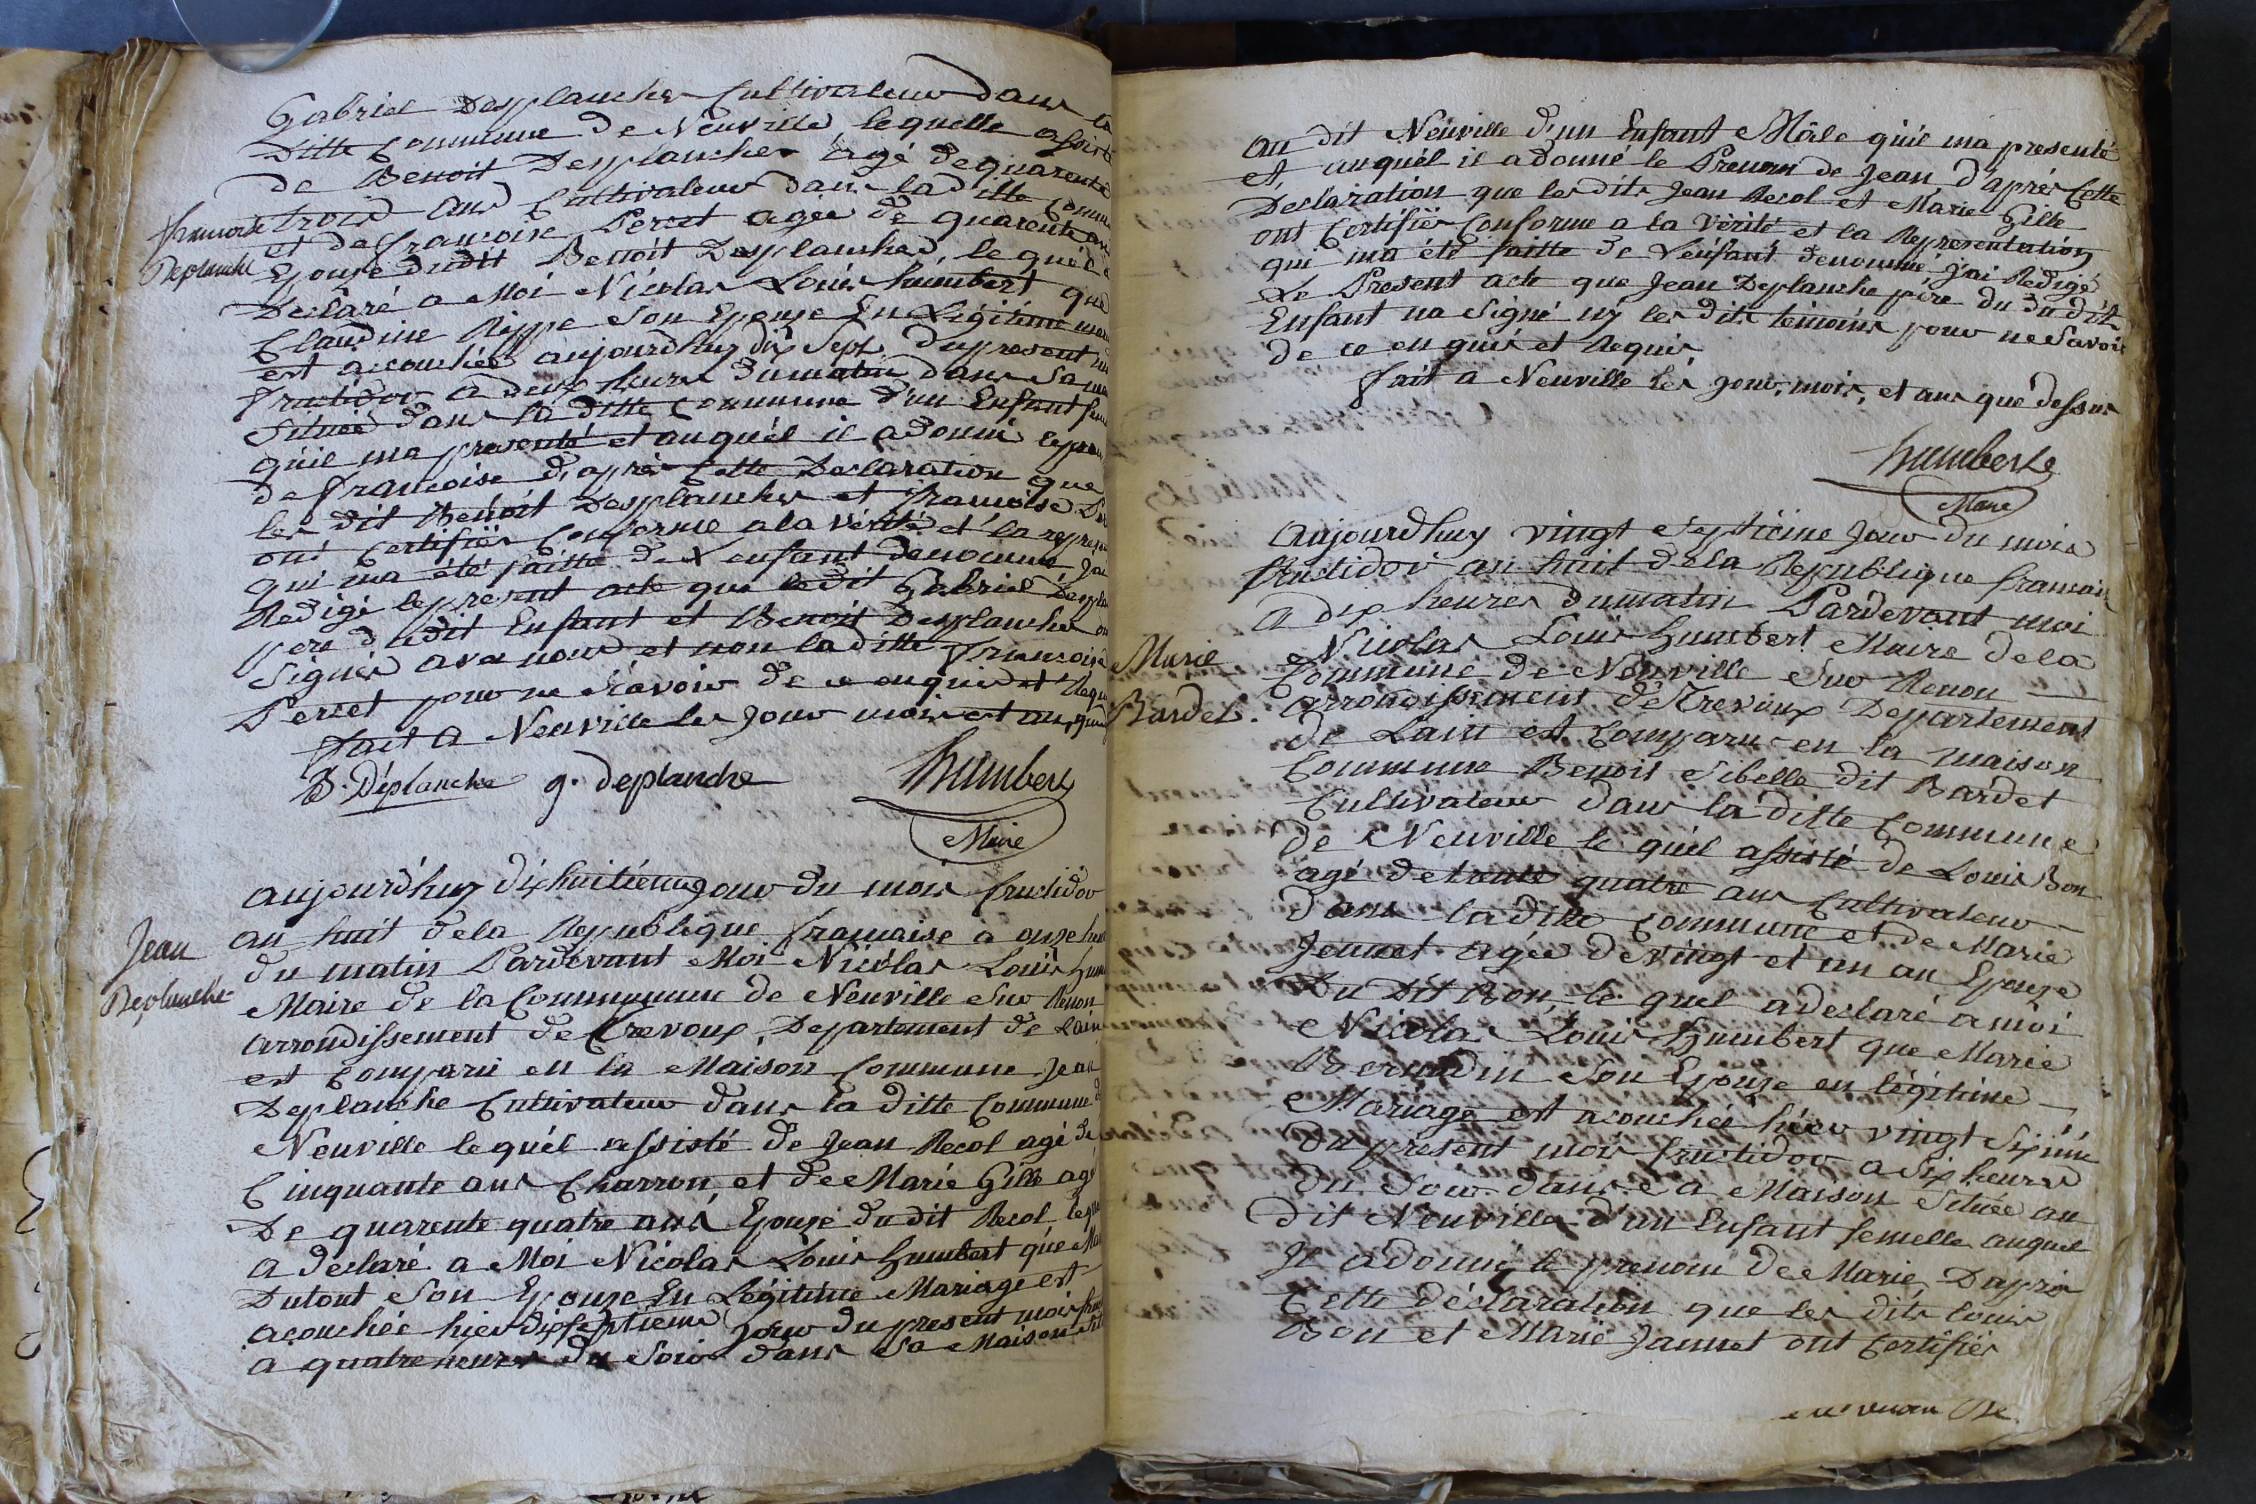 Gabriel Desplanches Cultivateur dans la
ditte Commune de Neuville, lequelle assisté
de Benoit Desplanches agé de quarente
trois ans Cultivateur dans la ditte Comm
et de françoise Perret agée de quarente ans
Epouse dudit Benoit Desplanches, le quel a
Déclaré a Moi Nicolas Louis humbert que
Claudine Rippe Son Epouse En Légitime mar
est acouchée aujourdhuy dix Sept du present m
fructidor a deux heures du matin dans Sa m
Située dans la ditte Commune d'un Enfant fem
qu'il ma presenté et auquél il a donné le pren
de françoise d'après Cette Declaration que
les dit Benoit Desplanches et françoise Per
ont Certifiés Conforme a la Vérité et la repres
qui ma été faitte de L'enfant denommé, Jai
Redigé le present acte que le dit Gabriel Despla
pere dudit Enfant et Benoit Desplanches on
Signés avec nous et non la ditte françoise
Perret pour ne Scavoir de ce enquis et Requ
fait a Neuville les Jour mois et ans que
B. Déplanche g. deplanche humbert
Maire
françoise
Deplanche
aujourd'huy dixhuitieme jour du mois fructidor
an huit de la Republique française a onze heu
du matin Pardevant Moi Nicolas Louis hum
Maire de la Commune de Neuville Sur Renon
arrondissement de Trevoux, Departement de Lain
est Comparu en la Maison Commune Jean
Deplanche Cultivateur dans la ditte Commune d
Neuville lequél assisté de Jean Recol agé de
Cinquante ans Charron, et de Marie Gille agé
De quarente quatre ans, Epouse du dit Recol, lequ
a déclaré a Moi Nicolas Louis Humbert que Ma
Dutout Son Epouse En Légitime Mariage est
acouchée hier dixseptieme jour du present mois fruc
a quatre heures du Soir dans Sa Maison Sit
Jean
Deplanche
au dit Neuville d'un Enfant Mâle qu'il ma presenté
et auquél il a donné le Prenom de Jean, d'après Cette
Declaration que les dits Jean Recol et Marie Gille
ont Certifiés Conforme a la Vérité et la Representation
qui ma été faitte de L'enfant denommé j'ai Redigé
Le Present acte que Jean Deplanche père du du dit
Enfant na Signé ny les dits temoins pour ne Savoir
de ce en quis et Requis,
fait a Neuville les jour, mois, et ans que dessus
humbert
Maire
Aujourdhuy vingt Septième Jour du mois
fructidor an huit de la Republique francais
a dix heures du matin Pardevant moi
Nicolas Louis Humbert Maire de la
Commune de Neuville Sur Renon
arrondissement de Trevoux Departement
de Lain est Comparu en la maison
Commune Benoit Sibelle dit Bardet
Cultivateur dans la ditte Commune
de Neuville le quél assisté de Louis Bon
agé de trente quatre ans Cultivateur
dans la ditte Commune et de Marie
Jeunet agée de vingt et un an Epouse
Du Dit Bon, le quel a declaré a moi
Nicolas Louis Humbert que Marie
Bernardin Son Epouse en légitime
Mariage est acouchée hier vingt Sixime
du present mois fructidor a Six heures
du Soir dans Sa Maison Située au
dit Neuville d'un Enfant femelle auquel
Il a donné le prenom de Marie, Dapres
Cette déclaration que les dits Louis
Bon et Marie Jannet ont Certifiés
Marie
Bardet.